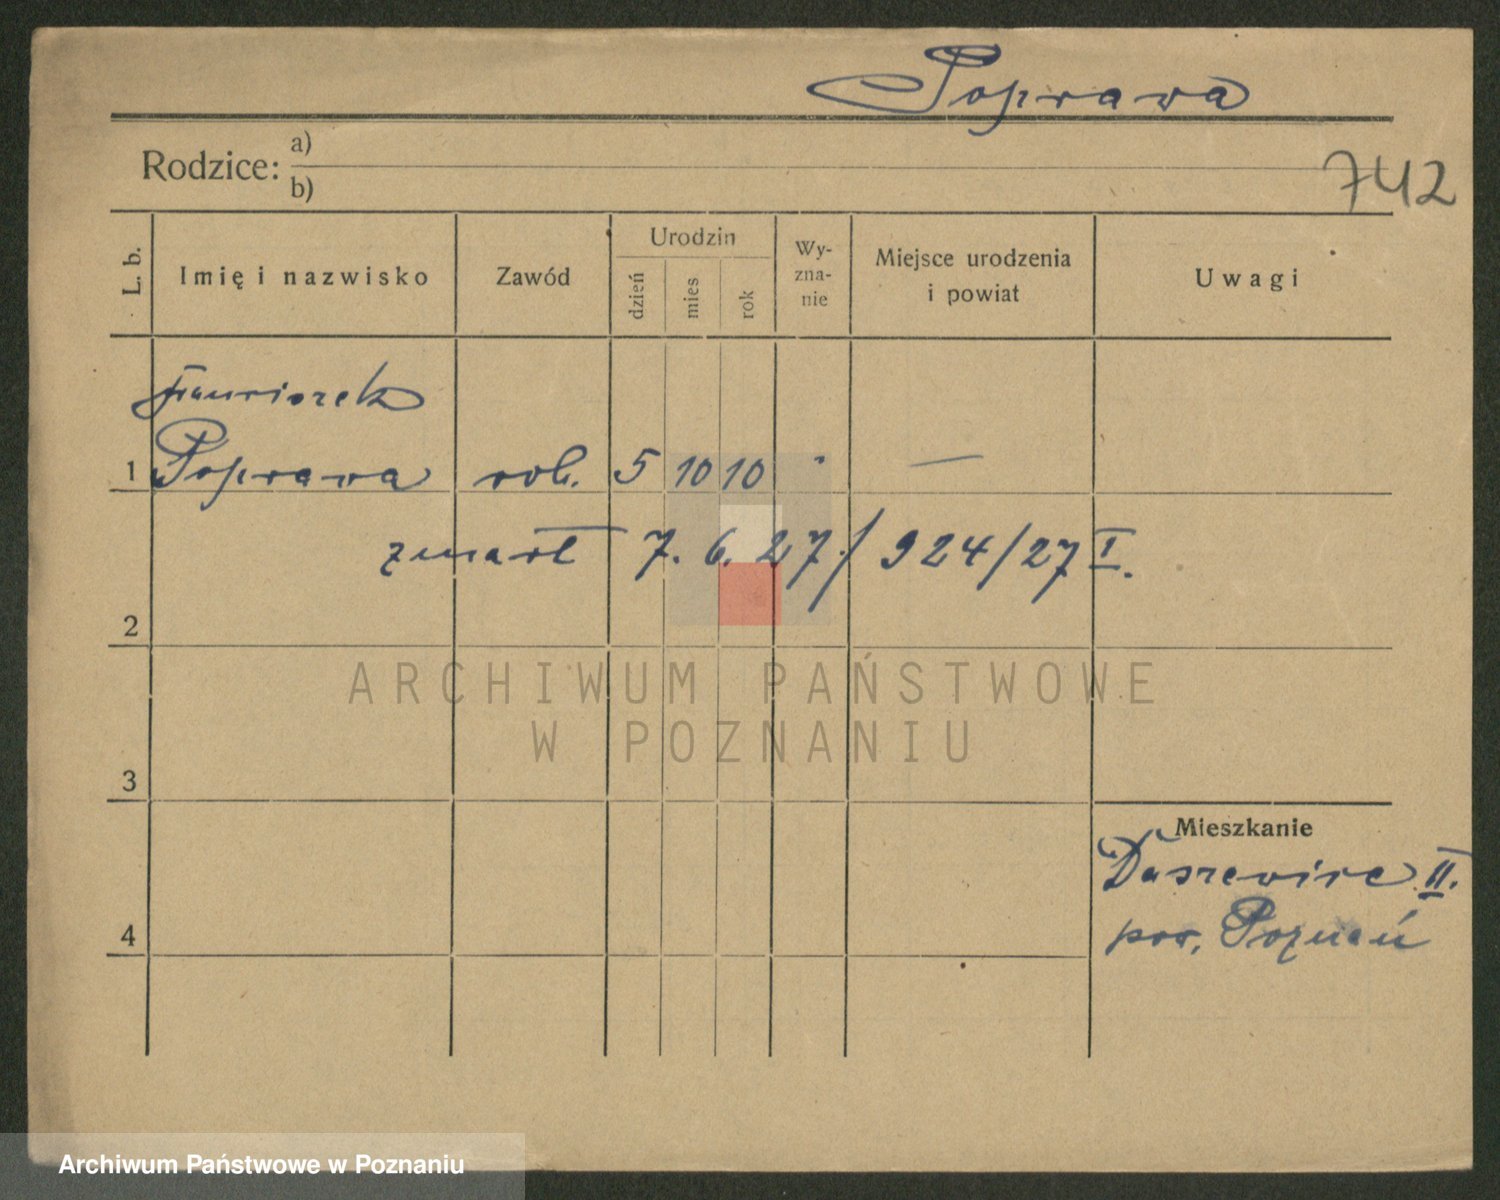 Poprawa
Rodzice: a)
b)
742
L. b. Imię i nazwisko Zawód Urodzin dzień mies rok Wy-zna-nie Miejsce urodzenia i powiat Uwagi
Franciszek
1 Poprawa rob. 5 10 10 " —
zmarł 7. 6. 27./ 924/27 I.
2
3
Mieszkanie
Daszewice II.
4 pow. Poznań
ARCHIWUM PAŃSTWOWE
W POZNANIU
Archiwum Państwowe w Poznaniu